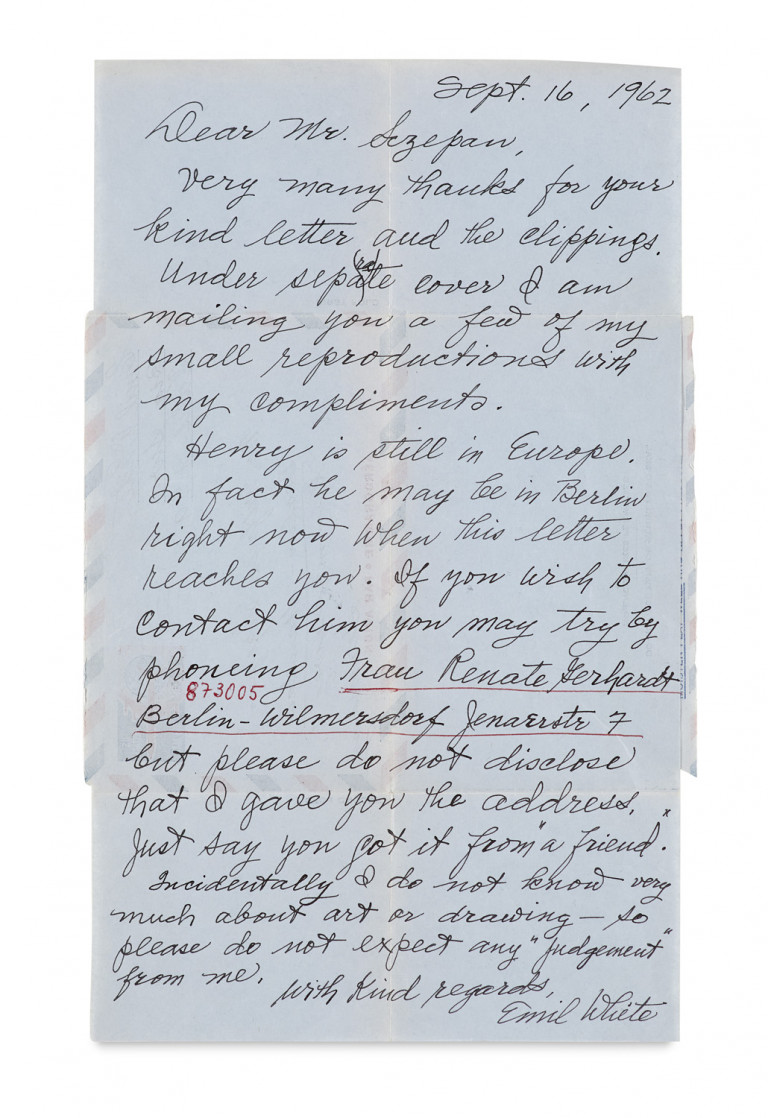 Sept. 16, 1962
Dear Mr. Sczepan,
Very many thanks for your
kind letter and the clippings.
Under sepa(ra)te cover I am
mailing you a few of my
small reproductions with
my compliments.
Henry is still in Europe.
In fact he may be in Berlin
right now when this letter
reaches you. If you wish to
contact him you may try by
phoneing Frau Renate Gerhardt
873005
Berlin-Wilmersdorf Jenaerstr 7
but please do not disclose
that I gave you the address.
Just say you got it from "a friend".
Incidentally I do not know very
much about art or drawing — so
please do not expect any "judgement"
from me.
With kind regards,
Emil White